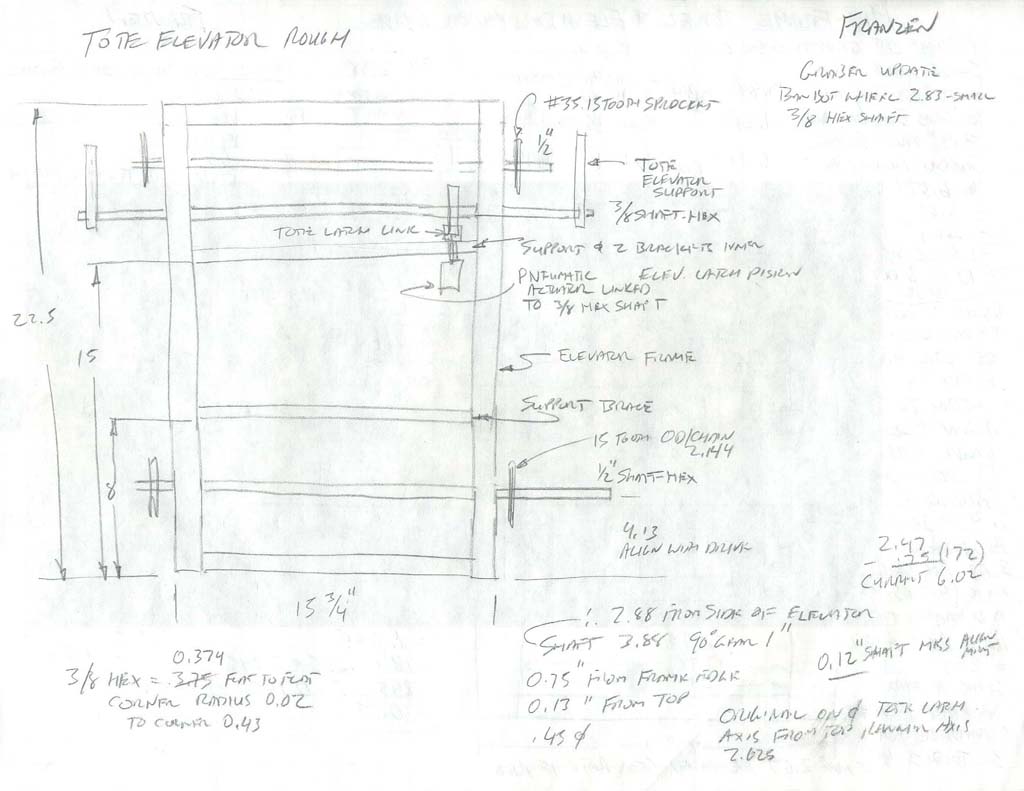 TOTE ELEVATOR ROUGH
FRANZEN
UPDATE
BANEBOT WHEEL 2.83-SMALL
3/8 HEX SHAFT
#35.15 TOOTH SPROCKET
1/2"
TOTE
ELEVATOR
SUPPORT
3/8 SHAFT-HEX
TOTE LATCH LINK
SUPPORT & 2 BRACKETS INNER
PNEUMATIC
ACTUATOR LINKED
TO 3/8 HEX SHAFT
ELEV. LATCH DESIGN
22.5
15
ELEVATOR FRAME
SUPPORT BRACE
15 TOOTH OD/CHAIN
2.144
8
1/2" SHAFT-HEX
4.13
ALIGN WITH DRIVE
2.47
.75 (172)
CURRENT 6.02
15 3/4"
∴ 2.88 FROM SIDE OF ELEVATOR
SHAFT 3.88 90° GEAR 1"
0.12" SHAFT MISS ALIGN
MENT
0.374
3/8 HEX = .375 FLAT TO FLAT
CORNER RADIUS 0.02
TO CORNER 0.43
0.75" FROM FRAME EDGE
0.13" FROM TOP
.43 ¢
ORIGINAL ON ¢ TOTE LATCH
AXIS FROM TOP, AXIS
2.625